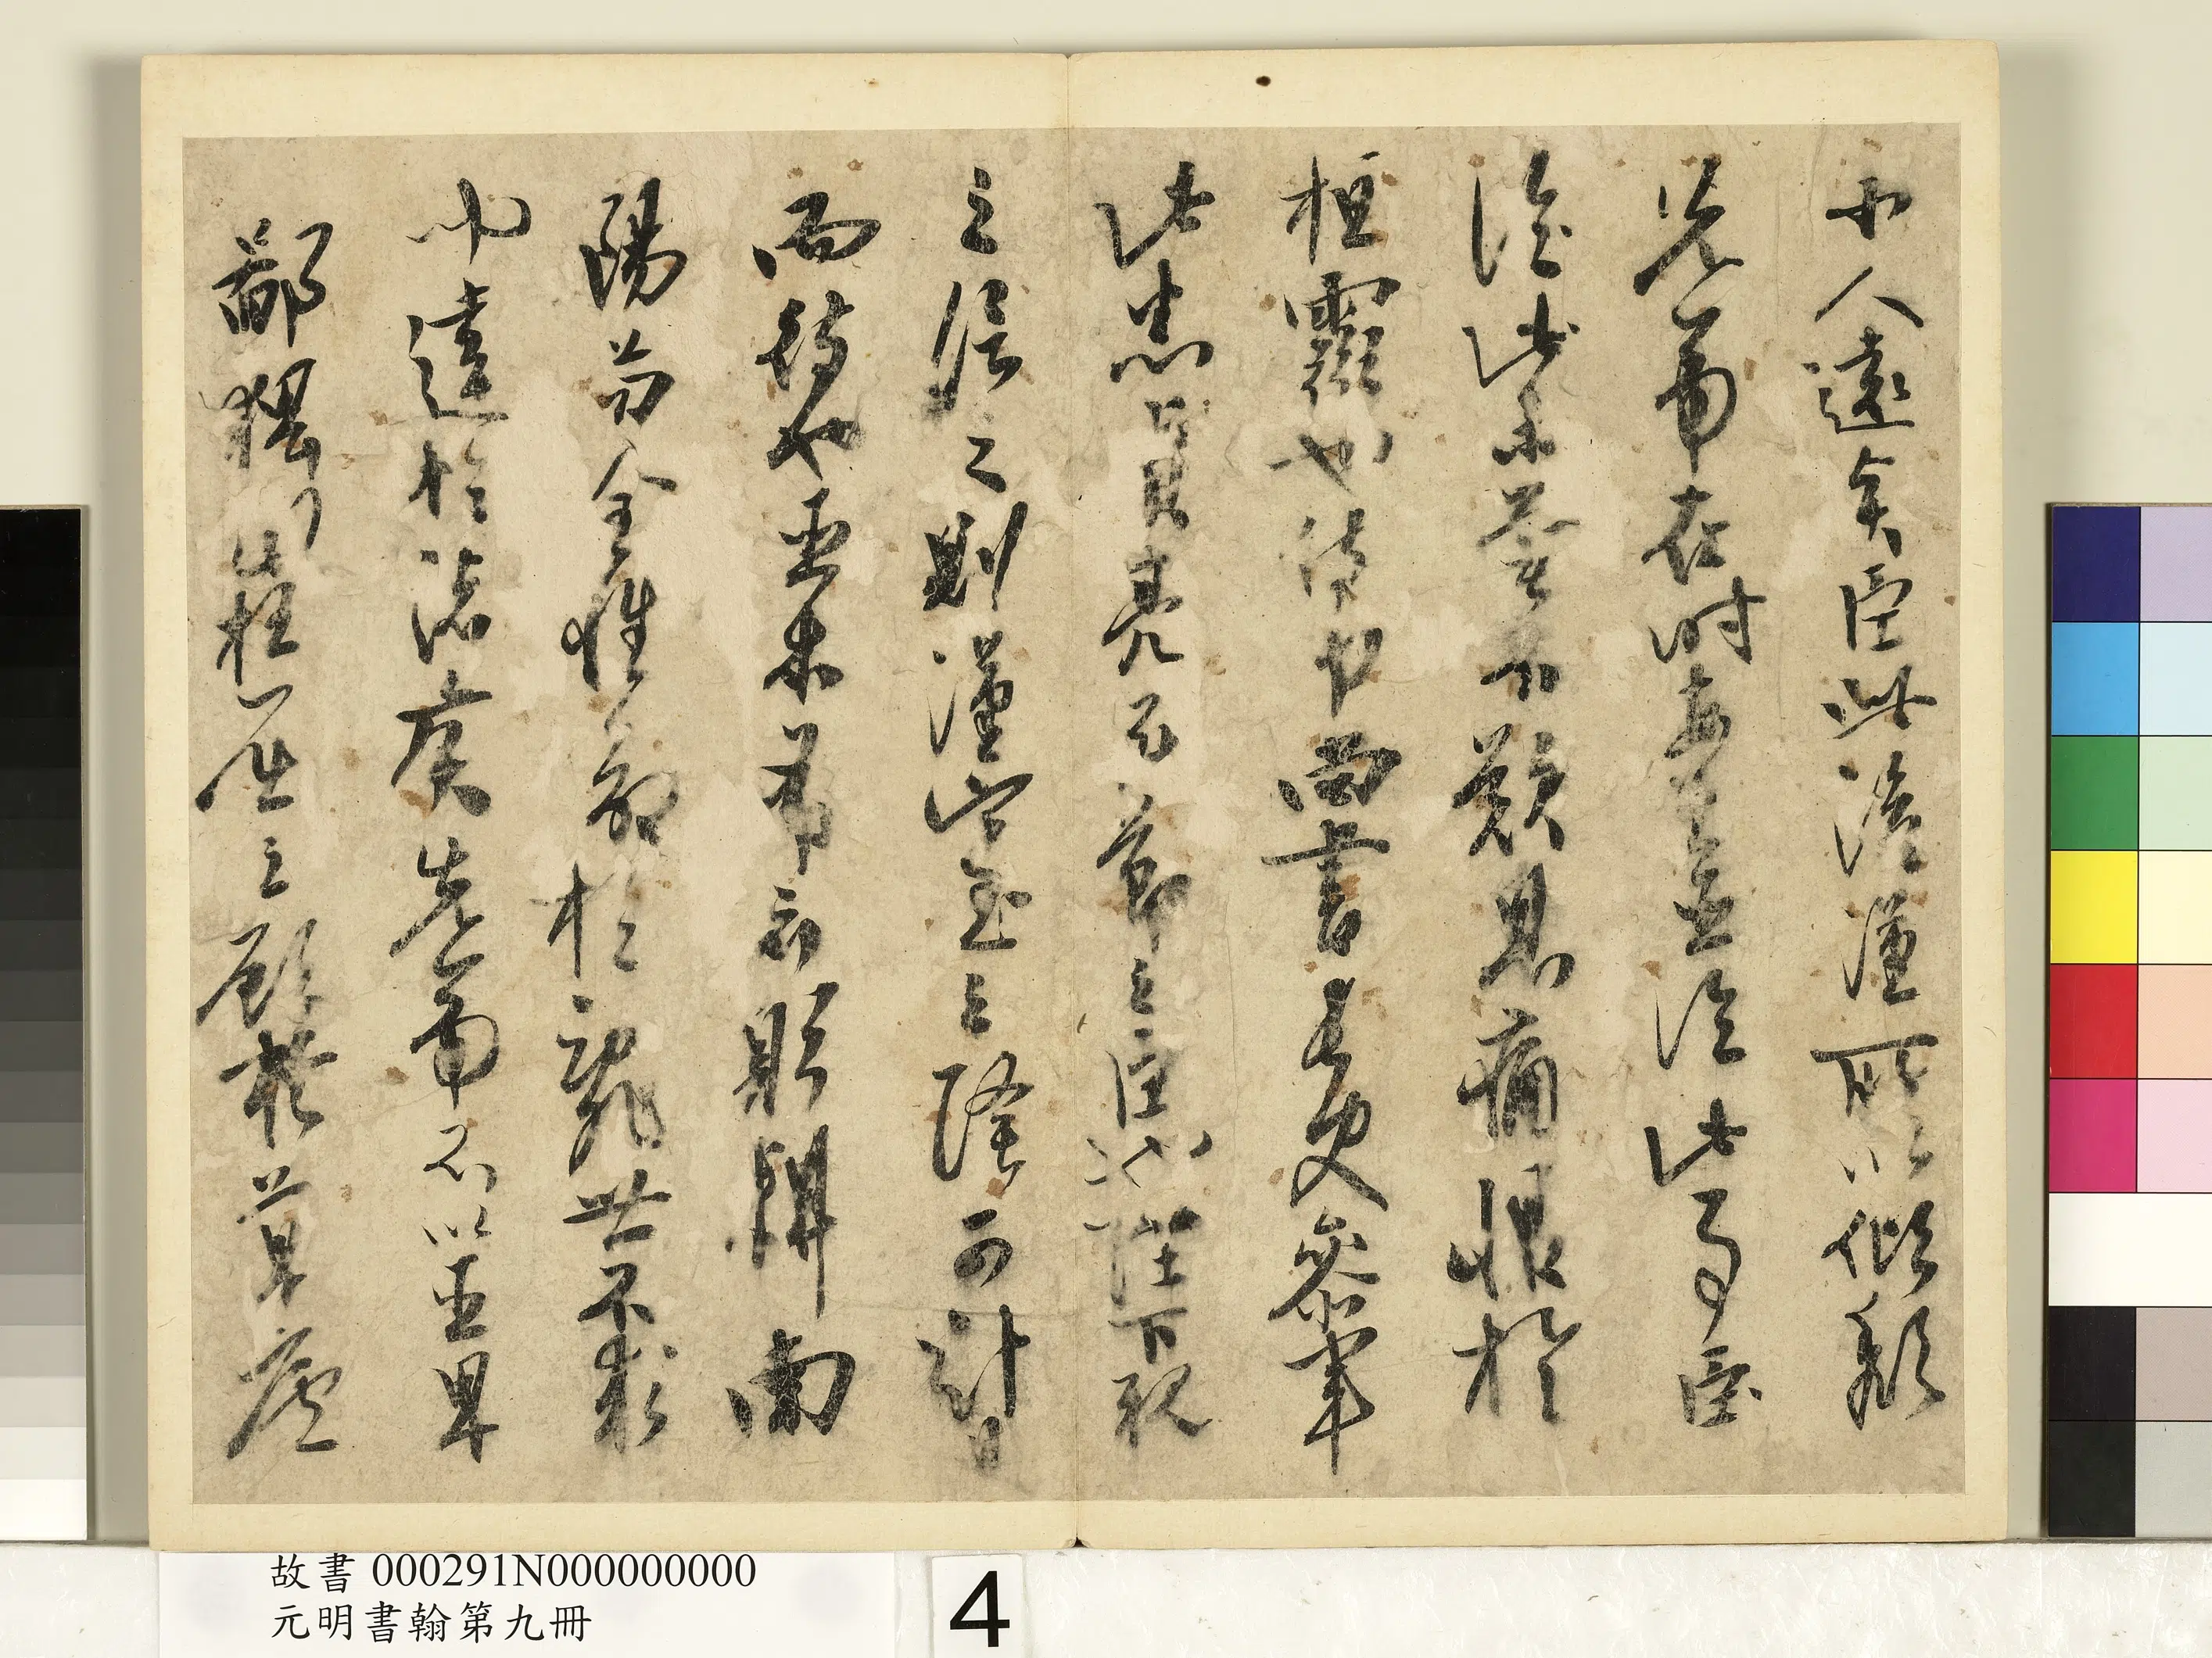 小人遠賢臣此後漢所以傾頹
先帝在時每與臣論此事臣
論此未嘗不歎息痛恨於
桓靈也侍中尚書長史參軍
此悉貞亮死節之臣也陛下親
之信之則漢室之隆可計日
而待也臣本布衣躬耕南
陽苟全性命於亂世不求
聞達於諸侯先帝不以臣卑
鄙猥自枉屈三顧於草廬
故書 000291N000000000
元明書翰第九冊
4